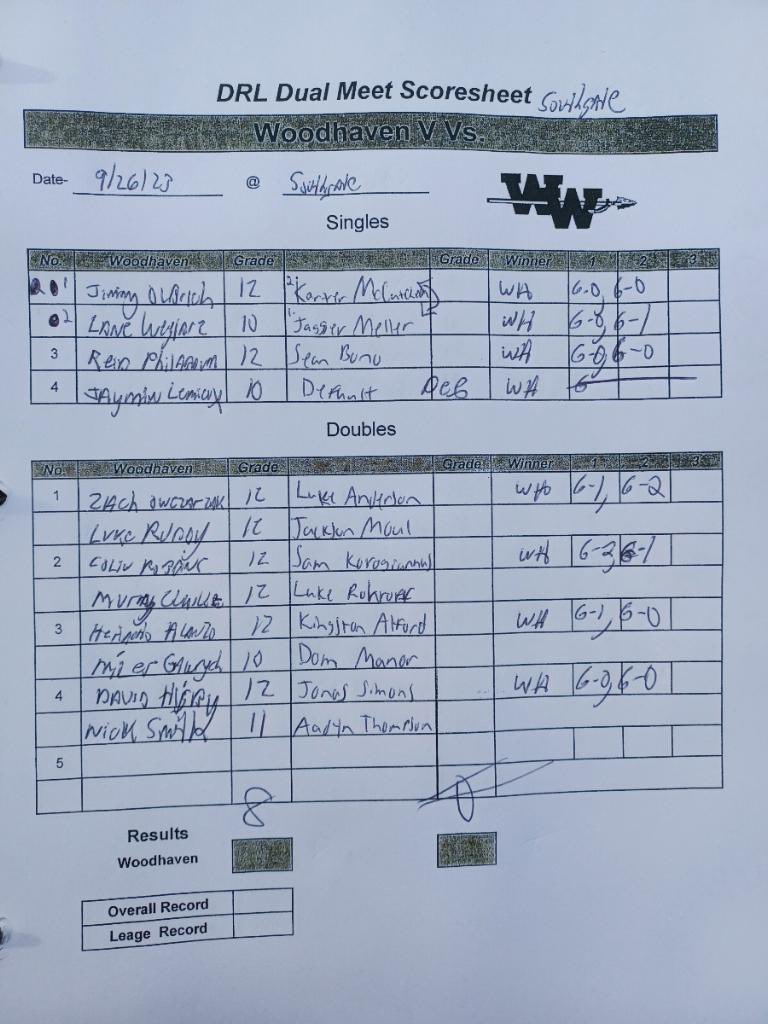 DRL Dual Meet Scoresheet Southgate
Woodhaven V Vs.
Date- 9/26/23 @ Southgate
WW
Singles
No. Woodhaven Grade Grade Winner 1 2 3
1 Jimmy 12 2 Karter WH 6-0, 6-0
2 Lane 10 1 Jagger Meller WH 6-0, 6-1
3 12 Sean Bono WH 6-0, 6-0
4 Jaymin Lemieux 10 Default WH 6
Doubles
No. Woodhaven Grade Grade Winner 1 2 3
1 Zach Owczarzak 12 Luke Anderson WH 6-1, 6-2
Luke Ruddy 12 Jackson Moul
2 Colin 12 Sam WH 6-2, 6-1
Murray 12 Luke
3 Alonzo 12 Kingston Alford WH 6-1, 6-0
10 Dom Manor
4 David 12 Jonas Simons WH 6-0, 6-0
Nick Smith 11 Aadyn Thompson
5
8 0
Results
Woodhaven
Overall Record
Leage Record